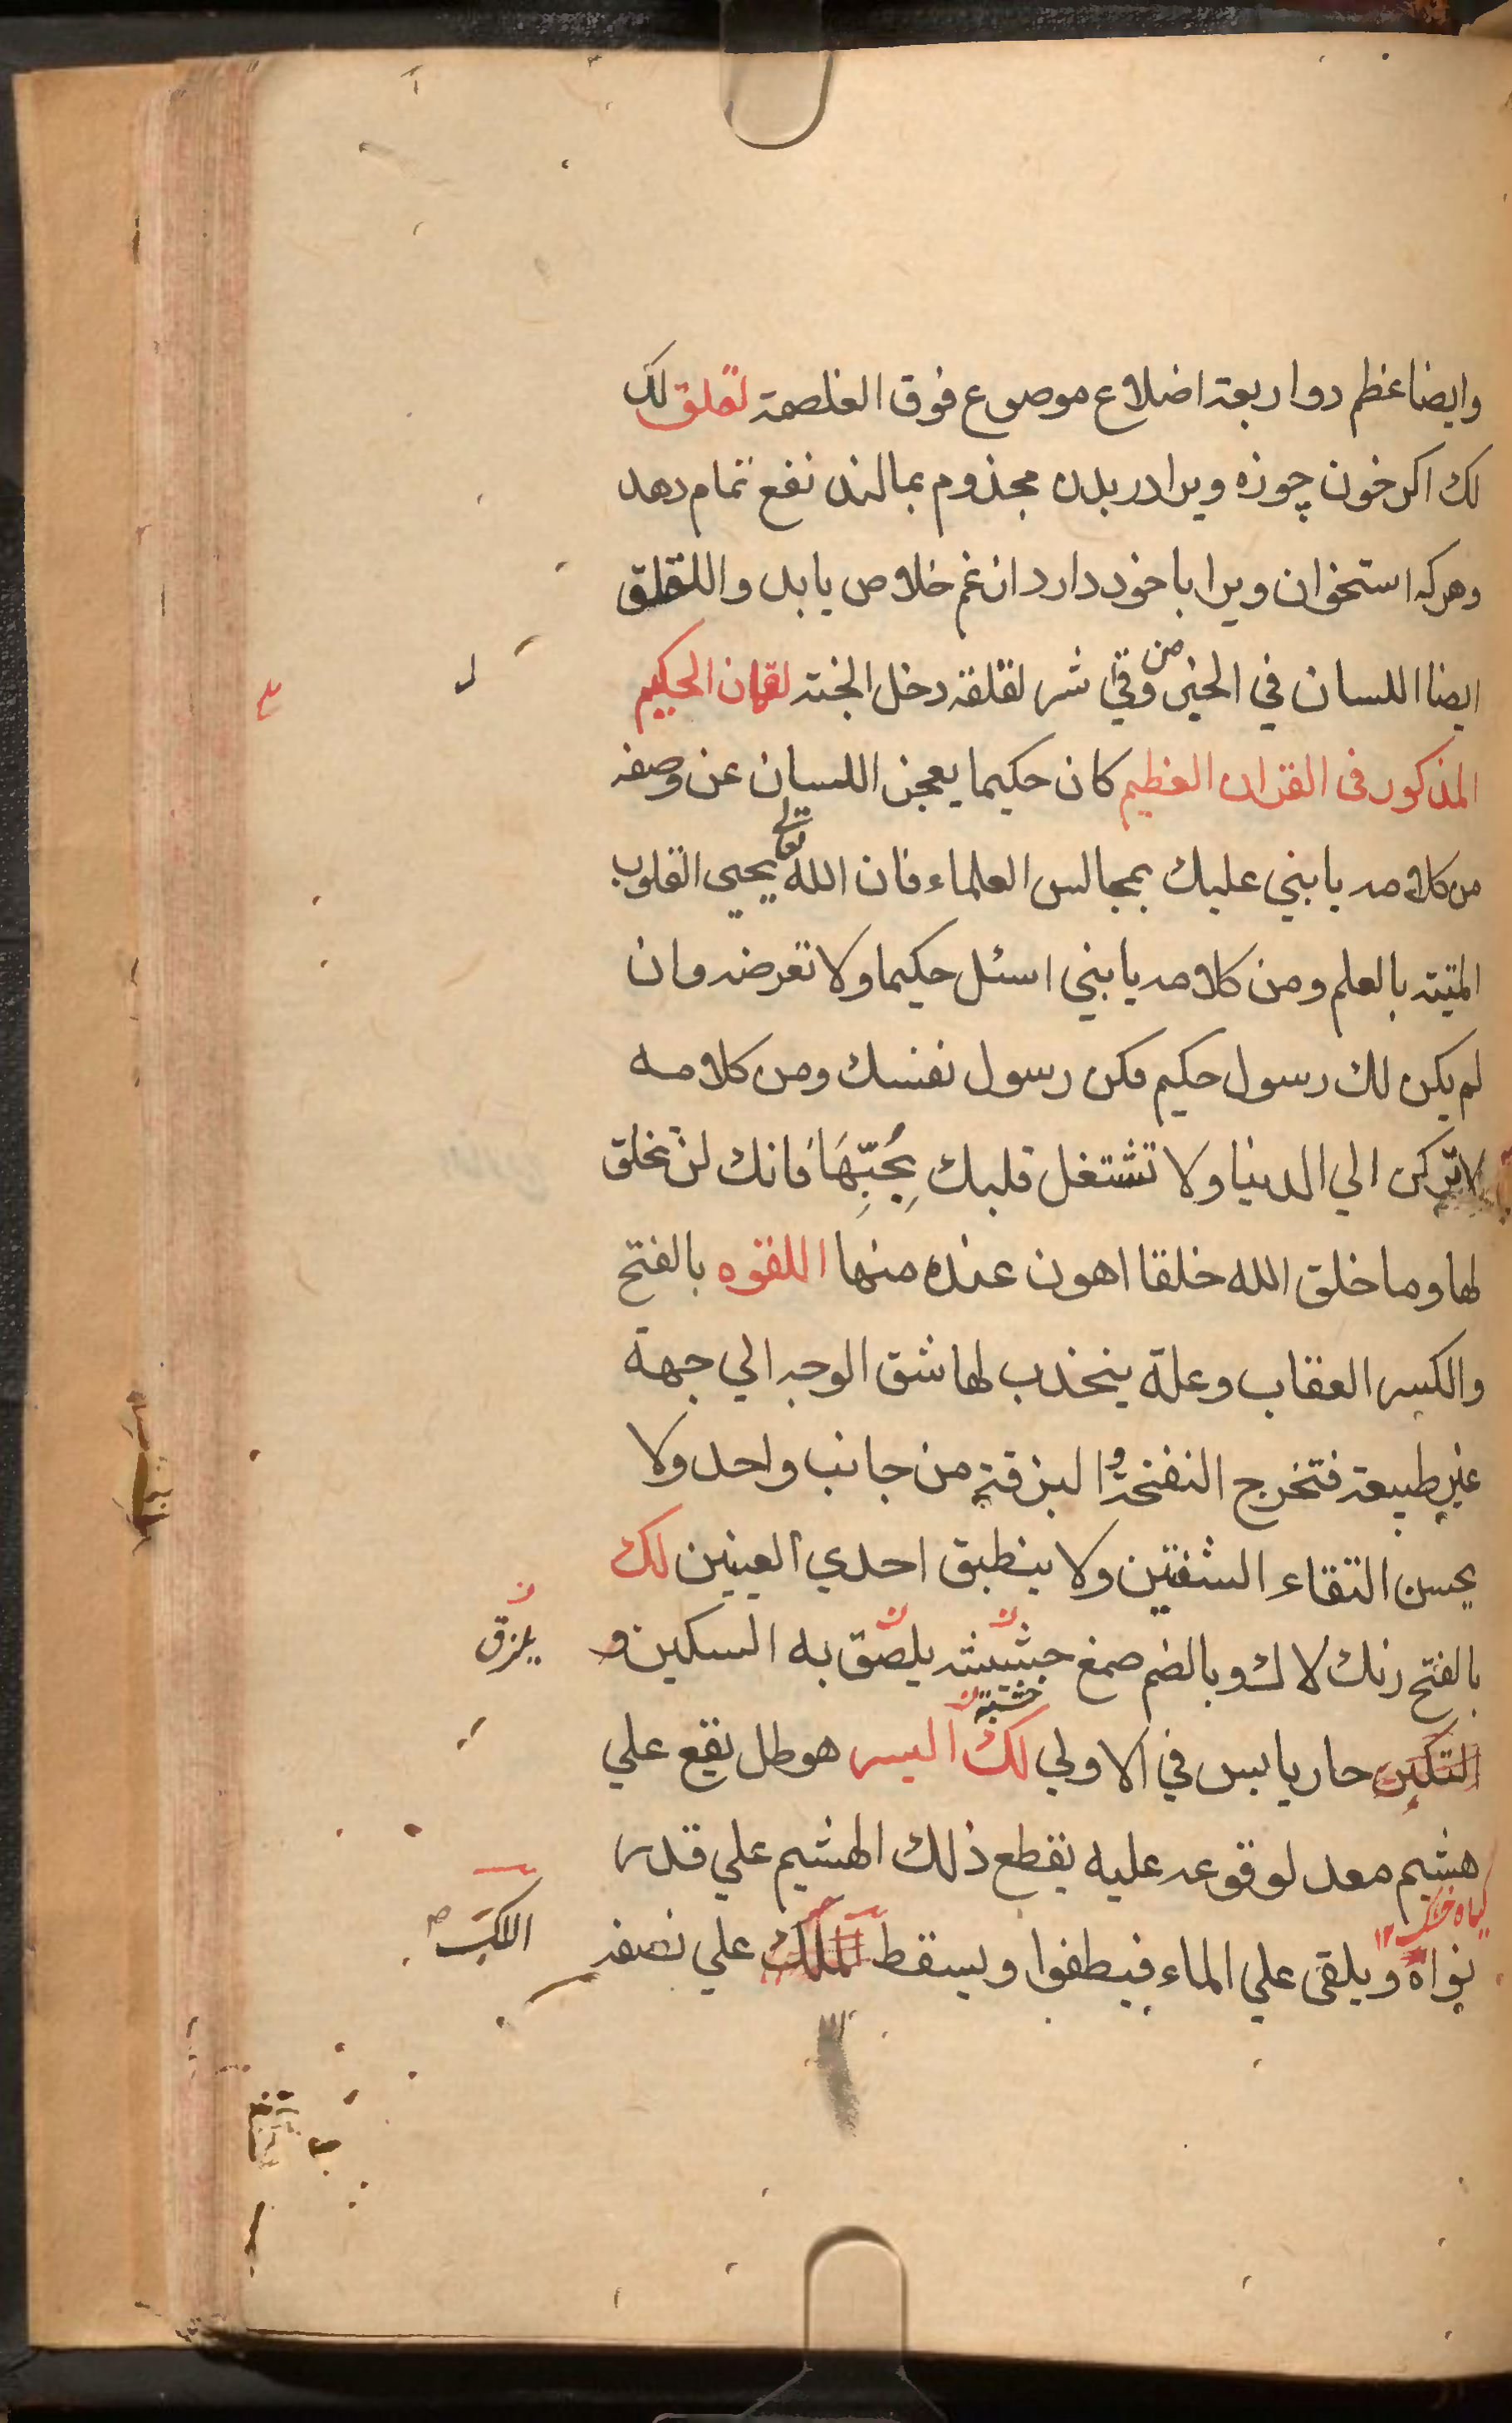 وايضا عظم ذو اربعة اضلاع موضوع فوق الغلصمة لقلق لك
لك اكر خون چوزه ويرا در بدن مجذوم بمالند نفع تمام دهد
وهركه استخوان ويرا با خود دارد از غم خلاص يابد واللقلق
ايضا اللسان في الخبر من وقي شر لقلقه دخل الجنة لقمان الحكيم
المذكور فى القران العظيم كان حكيما يعجز اللسان عن وصفه
من كلامه يا بني عليك بمجالس العلماء فان الله تعالى يحيي القلوب
الميتة بالعلم ومن كلامه يا بني اسئل حكيما ولا تعرضه وان
لم يكن لك رسول حكيم فكن رسول نفسك ومن كلامه
لا تركن الي الدنيا ولا تشتغل قلبك بِحُبِّهَا فانك لن تخلق
لها وما خلق الله خلقا اهون عنده منها اللقوه بالفتح
والكسر العقاب وعلة ينجذب لها شق الوجه الي جهة
غير طبيعة فتخرج النفخة و البزقة من جانب واحد ولا
يحسن التقاء الشفتين ولا ينطبق احدي العينين لك
بالفتح رنك لاك وبالضم صمغ حشيشه يلصق به السكين و
يلزق
خشبة
حار يابس في الاولي لك اليسر هو طل يقع علي
هشيم معد لوقوعه عليه يقطع ذلك الهشيم علي قدر
كياه خشك ١٢
نواة ويلقى علي الماء فيطفوا ويسقط علي نصفه
اللك